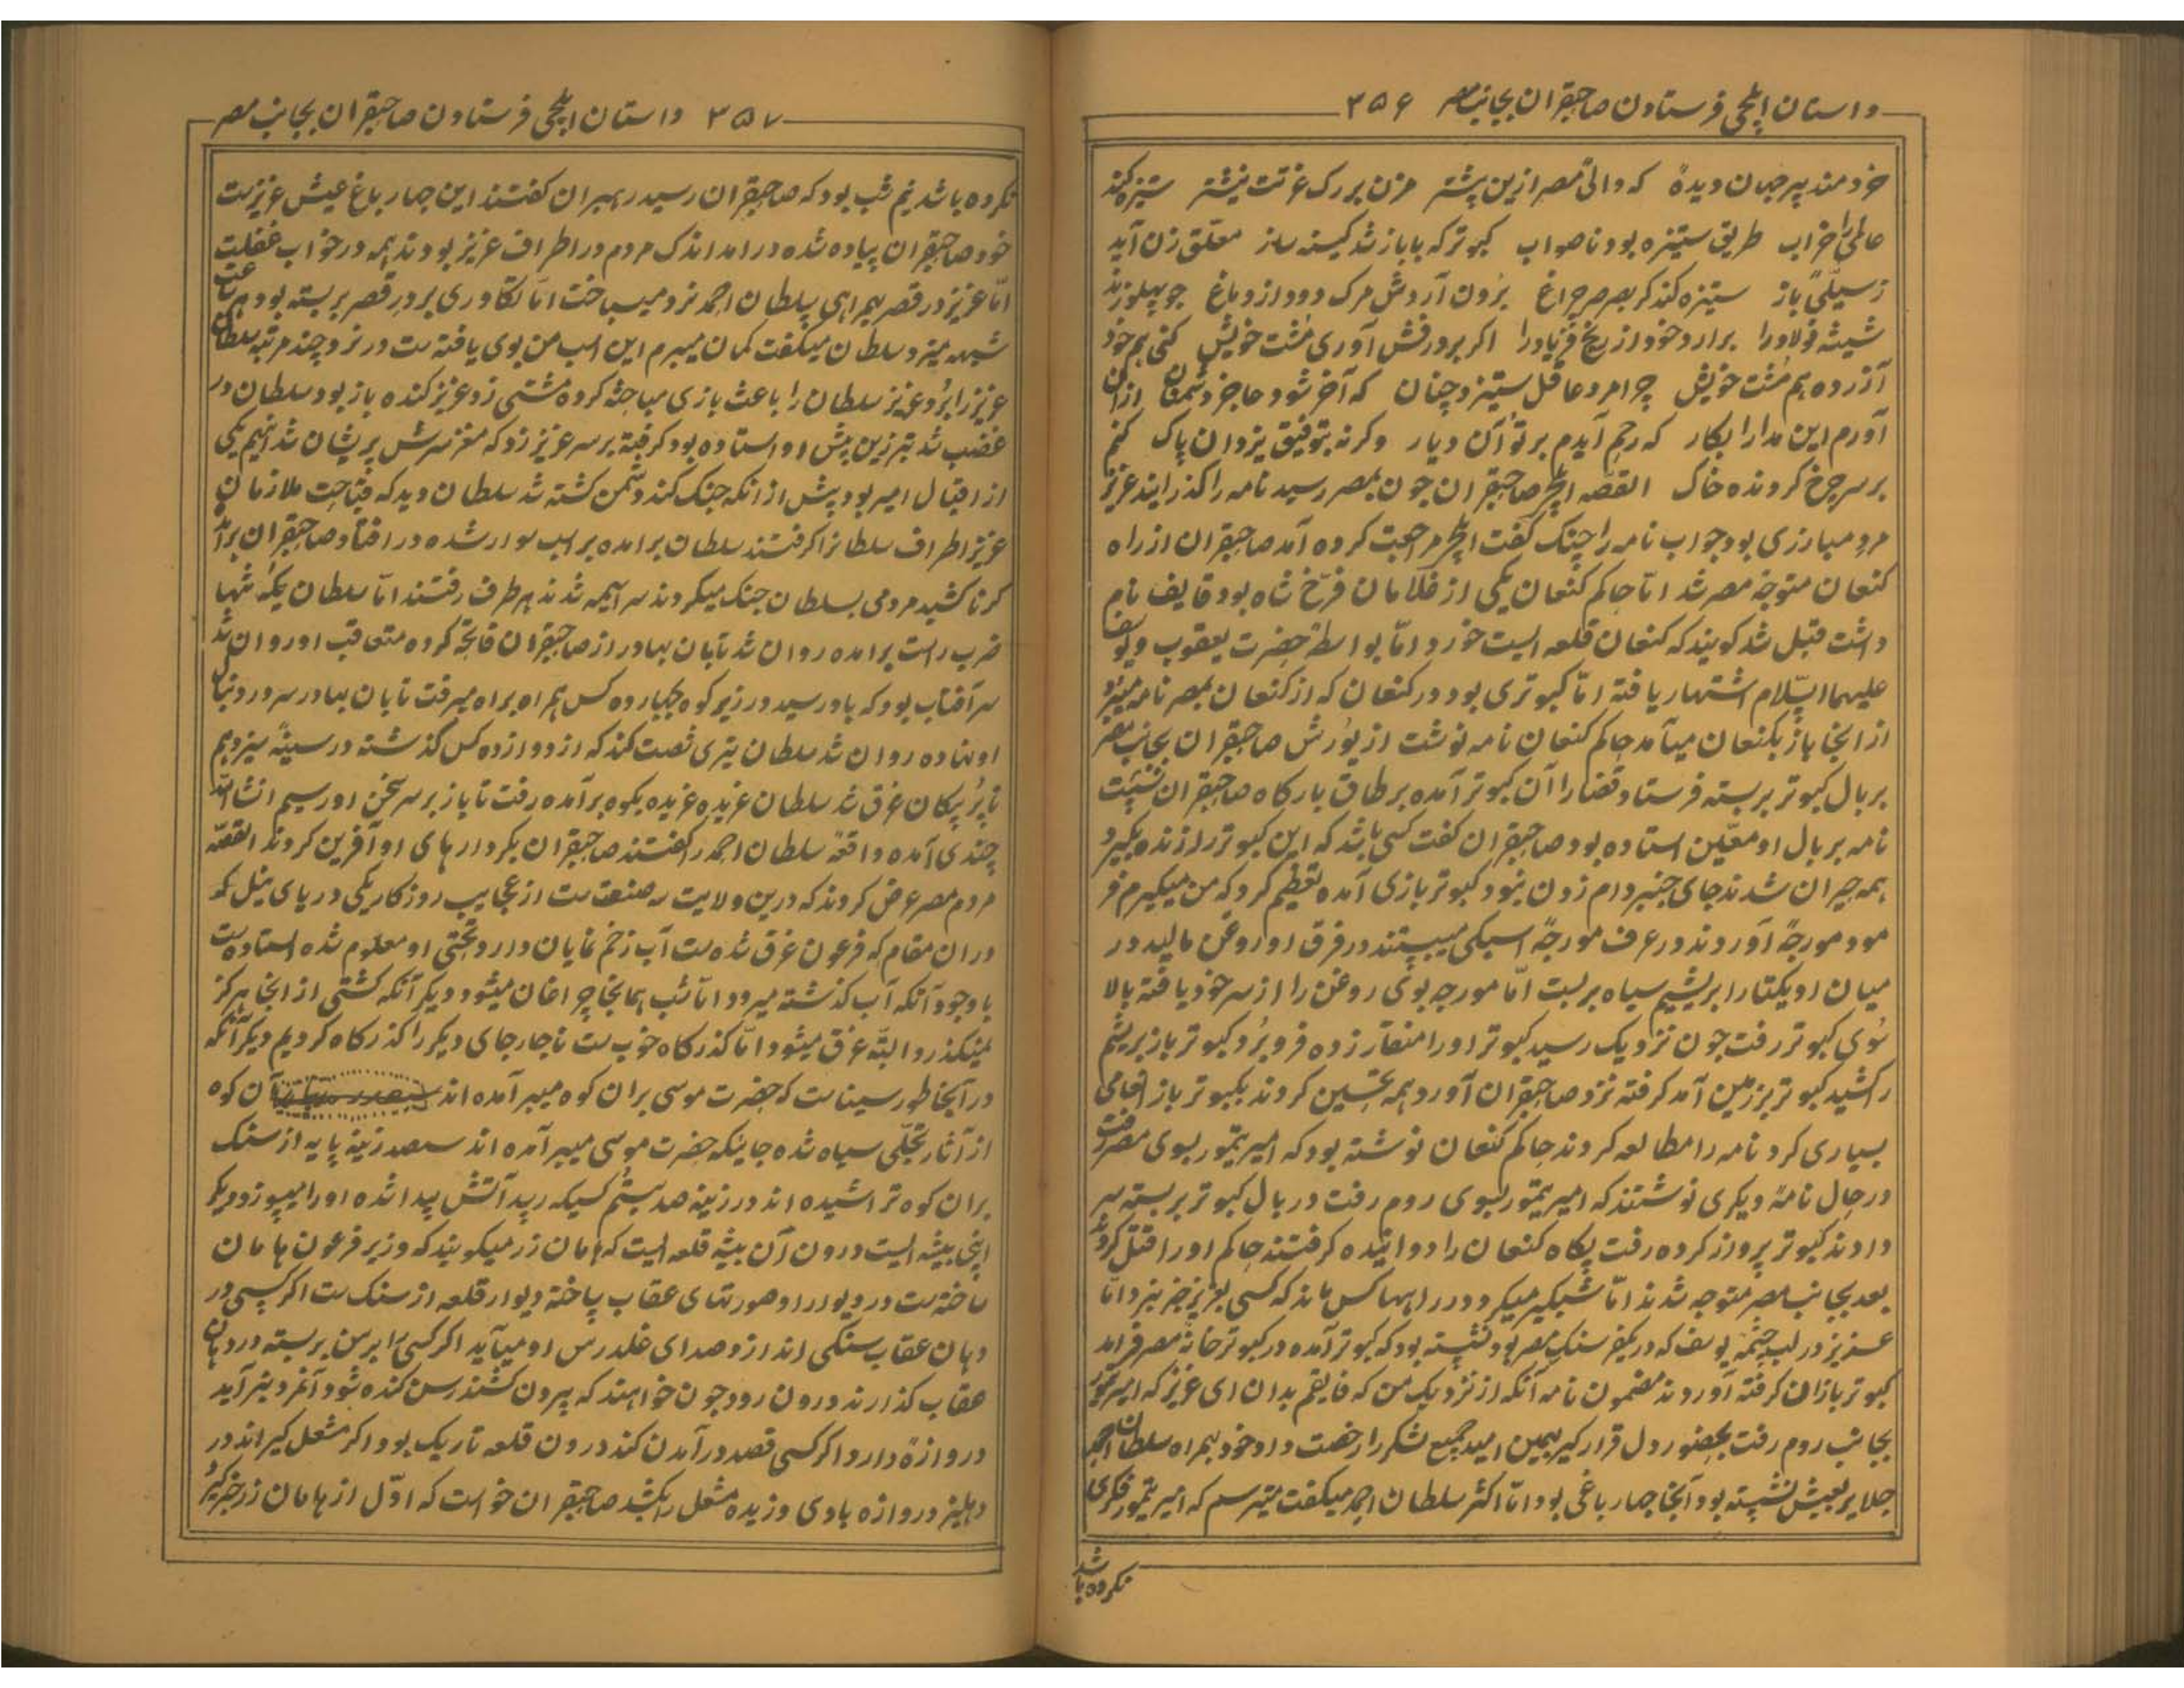 داستان ایلچی فرستادن صاحبقران بجانب مصر ۳۵۶
خردمند پیر جهان دیدهٔ که والی مصر ازین پشتر مزن بر رک عزتت نیشتر ستیزه کند
عالمی را خراب طریق ستیزه بود ناصواب کبوتر که با باز شد کینه ساز معلق زن آید
ز سیلّی باز ستیزه کند کر بصرصر چراغ برون آردش مرک دود از دماغ چو پهلو زند
شیشه فولاد را برارد خود از بیخ فریاد را اکر بر درفش آوری مشت خویش کنی هم خود
آزرده هم مشت خویش چرا مرد عاقل ستیزد چنان که آخر شود عاجز دشمنان ازان
آورم این مدارا بکار که رحم آیدم بر تو آن دیار وکرنه بتوفیق یزدان پاک کنم
بر سر چرخ کردونده خاک القصّه ایلچی صاحبقران چون بمصر رسید نامه را کذرایند عزیز
مرد مبارزی بود جواب نامه را چنک کفت ایلچی مراجعت کرده آمد صاحبقران از راه
کنعان متوجه مصر شد امّا حاکم کنعان یکی از غلامان فرّخ شاه بود قایف نام
داشت قبل شد کویند که کنعان قلعه ایست خورد امّا بواسطهٔ حضرت یعقوب و یوسف
علیهما السّلام اشتهار یافته امّا کبوتری بود در کنعان که از کنعان بمصر نامه میبرد
از انجا باز بکنعان میآمد حاکم کنعان نامه نوشت از یورش صاحبقران بجانب مصر
بر بال کبوتر بربسته فرستاد قضا را آن کبوتر آمده بر طاق بارکاه صاحبقران نشست
نامه بر بال او معیّن استاده بود صاحبقران کفت کسی باشد که این کبوتر را زنده بکیرد
همه حیران شدند جای جنبر دام زدن نبود کبوتر بازی آمده تعظیم کرد که من میکیرم فر
مود مورچهٔ آوردند در عرف مورچهٔ اسبکی میبستند در فرق او روغن مالید در
میان او یکتا را ابریشیم سیاه بربست امّا مورچه بوی روغن را از سر خود یافته بالا
سوی کبوتر رفت چون نزدیک رسید کبوتر او را منقار زده فرو برد کبوتر باز بریشم
را کشید کبوتر بزمین آمد کرفته نزد صاحبقران آورد همه تحسین کردند بکبوتر باز انعامی
بسیاری کرد نامه را مطالعه کردند حاکم کنعان نوشته بود که امیر تیمور بسوی مصر رفت
در حال نامهٔ دیکری نوشتند که امیر تیمور بسوی روم رفت در بال کبوتر بربسته سر
دادند کبوتر پرواز کرده رفت پکاه کنعان را دوانیده کرفتند حاکم او را قتل کردند
بعد بجانب مصر متوجه شدند امّا شبکیر میکرد و در راهها کس ماند که کسی بعزیز خبر نبرد امّا
عزیز در لب چشمهٔ یوسف که در یکفر سنک مصر بود نشسته بود که کبوتر آمده در کبوتر خانهٔ مصر فرامد
کبوتر بازان کرفته آوردند مضمون نامه آنکه از نزدیک من که قایفم بدان ای عزیز که امیر تیمور
بجانب روم رفت بحضور دل قرار کیر بهمین امید جمیع لشکر را رخصت داد خود بهمراه سلطان احمد
جلایر بعیش نشسته بود آنجا چهار باغی بود امّا اکثر سلطان احمد میکفت میترسم که امیر تیمور فکری
نکرده باشد
۳۵۷ داستان ایلچی فرستادن صاحبقران بجانب مصر
نکرده باشد نیم شب بود که صاحبقران رسید رهبران کفتند این چهار باغ عیش عزیزست
خود صاحبقران پیاده شده در امد اندک مردم در اطراف عزیز بودند همه در خواب غفلت
امّا عزیز در قصر بهمراهی سلطان احمد نرد میباخت امّا تکاوری بر در قصر بربسته بود هر ساعت
شیهه میزد سلطان میکفت کمان میبرم این اسب من بوی یافته ست در نرد چند مرتبه سلطان
عزیز را برد عزیز سلطان را باعث بازی مباحثه کرده مشتی زد عزیز کنده باز بود سلطان در
غضب شد تبرزین پیش او استاده بود کرفته بر سر عزیز زد که مغز سرش پریشان شد اینهم یکی
از اقبال امیر بود پیش از انکه جنک کند دشمن کشته شد سلطان دید که قباحت ملازمان
عزیز اطراف سلطانرا کرفتند سلطان برامده بر اسب سوار شده در افتاد صاحبقران برآمد
کرنا کشید مردمی بسلطان جنک میکردند سراسیمه شدند هر طرف رفتند امّا سلطان یکه تنها
ضرب راست برامده روان شد تابان بهادر از صاحبقران فاتحه کرده متعاقب او روان شد
سر آفتاب بود که باو رسید در زیر کوه چهارده کس همراه براه میرفت تابان بهادر سر در دنبال
او نهاده روان شد سلطان تیری شصت کند که از دوازده کس کذشته در سینهٔ سیزدهم
تا پر پیکان غرق شد سلطان غریده غریده بکوه برآمده رفت تا باز بر سر سخن او رسیم انشاالله
چندی آمده واقعهٔ سلطان احمد را کفتند صاحبقران بکردارهای او آفرین کردند القصّه
مردم مصر عرض کردند که درین ولایت سه صنعت ست از عجایب روزکار یکی دریای نیل که
دران مقام که فرعون غرق شده ست آب زخم نمایان دارد تختی او معلوم شده استاده ست
باوجود آنکه آب کذشته میرود امّا شب همانجا چراغان میشود دیکر آنکه کشتی از انجا هرکز
نمیکذرد البتّه غرق میشود امّا کذرکاه خوب ست ناچار جای دیکر را کذرکاه کردیم دیکر آنکه
در آنجا طور سیناست که حضرت موسی بران کوه میبر آمده اند آن کوه
از آثار تجلّی سیاه شده جاینکه حضرت موسی میبر آمده اند سیصد زینه پایه از سنک
بران کوه تراشیده اند در زینه صد بستم کسیکه رسید آتش پیدا شده او را میسوزد دیکر
اینجا بیشه ایست درون آن بیشه قلعه ایست که هامان زر میکویند که وزیر فرعون هامان
ساخته ست در دیوار او صورتهای عقاب ساخته دیوار قلعه از سنک ست اکر کسی در
دهان عقاب سنکی اندازد صدای غلدرس او میآید اکر کسی را برسن بربسته در دهان
عقاب کذارند درون رود چون خواهند که بیرون کشند رسن کنده شود آنمرد نیر آید
دروازهٔ دارد اکر کسی قصد درآمدن کند درون قلعه تاریک بود اکر مشعل کیراند در
دهلیز دروازه بادی وزیده مشعل را بکشد صاحبقران خواست که اوّل از هامان زر خبر کیرد